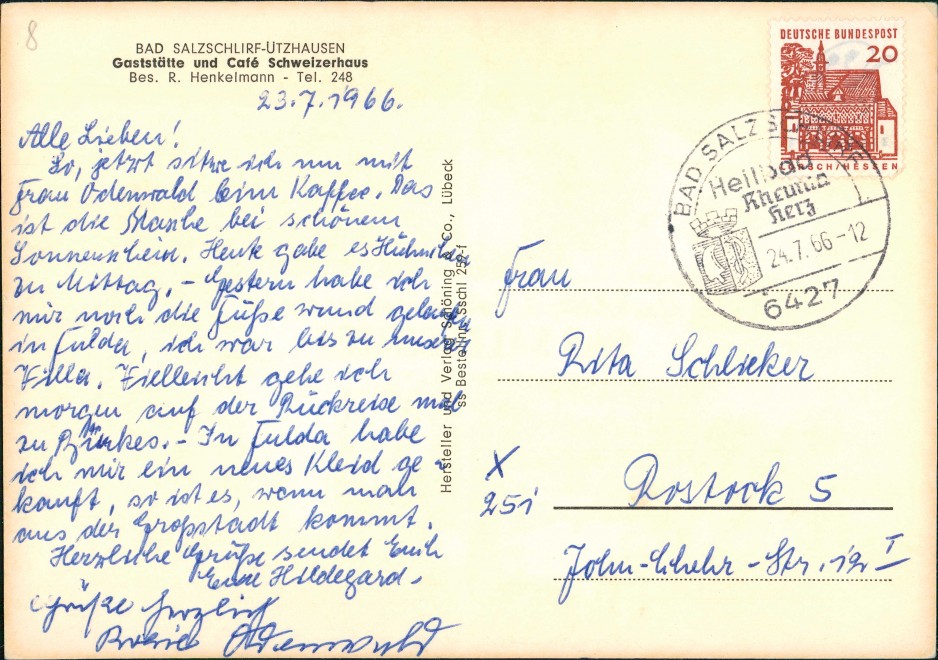 8
BAD SALZSCHLIRF-ÜTZHAUSEN
Gaststätte und Café Schweizerhaus
Bes. R. Henkelmann - Tel. 248
23.7.1966.
Alle Lieben!
So, jetzt sitze ich nun mit
Frau Odenwald beim Kaffee. Das
ist die Masche bei schönem
Sonnenschein. Heute gabe es Hühnchen
zu Mittag. - Gestern habe ich
mir noch die Füße wund gelaufen
in Fulda, ich war bis zu unserer
Villa. Vielleicht gehe ich
morgen auf der Rückreise mal
zu - In Fulda habe
ich mir ein neues Kleid ge-
kauft, so ist es, wenn man
aus der Großstadt kommt.
Herzliche Grüße sendet Euch
Eure Hildegard.
Grüße herzlich
Odenwald
Hersteller und Verlag Schöning & Co., Lübeck
ss Bestellnr. Sschl 259-f
DEUTSCHE BUNDESPOST
20
LORSCH/HESSEN
BAD SALZSCHLIRF
Heilbad
Rheuma
Herz
24.7.66-12
6427
Frau
Rita Schlieker
X
251
Rostock 5
John-Schehr-Str. 12 I